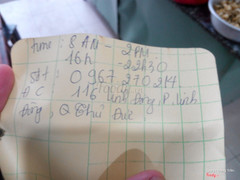 time: 8 AM - 2 PM.
16h - 22h30
Sđt: 0967.270.214.
ĐC: 116 Linh Đông, P. Linh
Đông, Q Thủ Đức